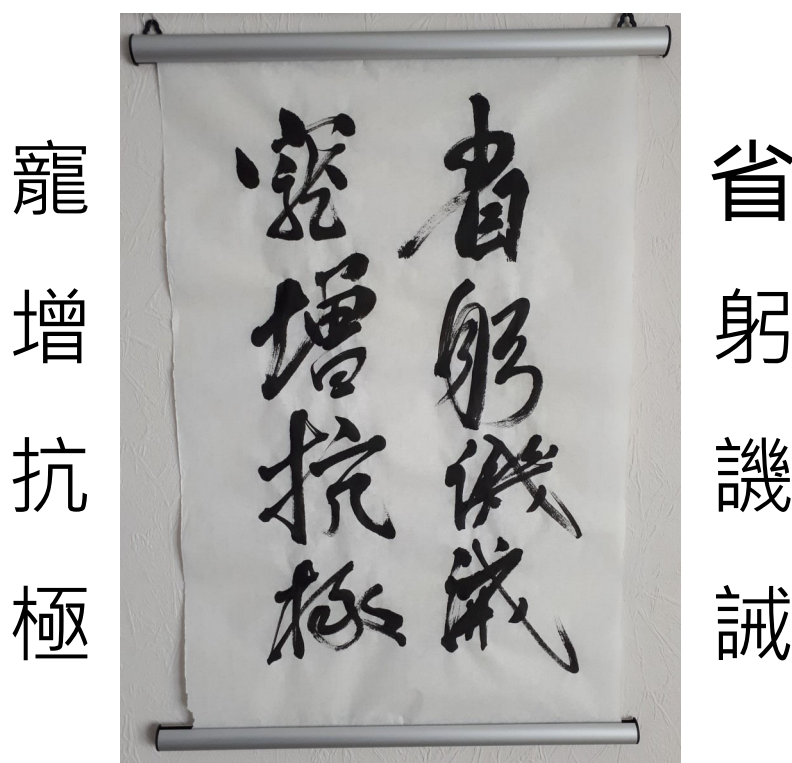 省躬譏誡
寵增抗極
省躬譏誡
寵增抗極